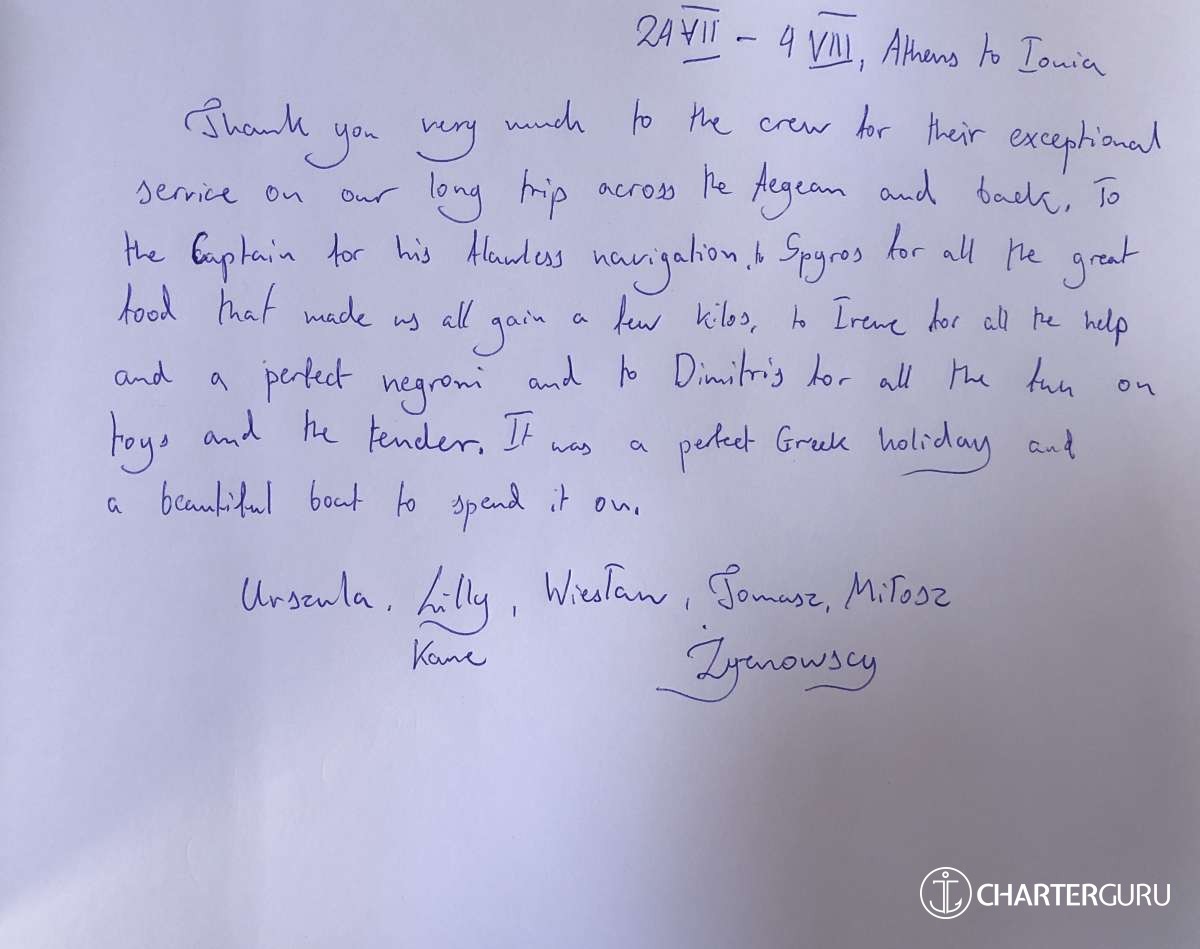 24 VII - 4 VIII, Athens to Ionia
Thank you very much to the crew for their exceptional
service on our long trip across the Aegean and back. To
the Captain for his flawless navigation, to Spyros for all the great
food that made us all gain a few kilos, to Irene for all the help
and a perfect negroni and to Dimitris for all the fun on
toys and the tender. It was a perfect Greek holiday and
a beautiful boat to spend it on.
Urszula, Lilly, Wiesław, Tomasz, Miłosz
Kane
CHARTERGURU